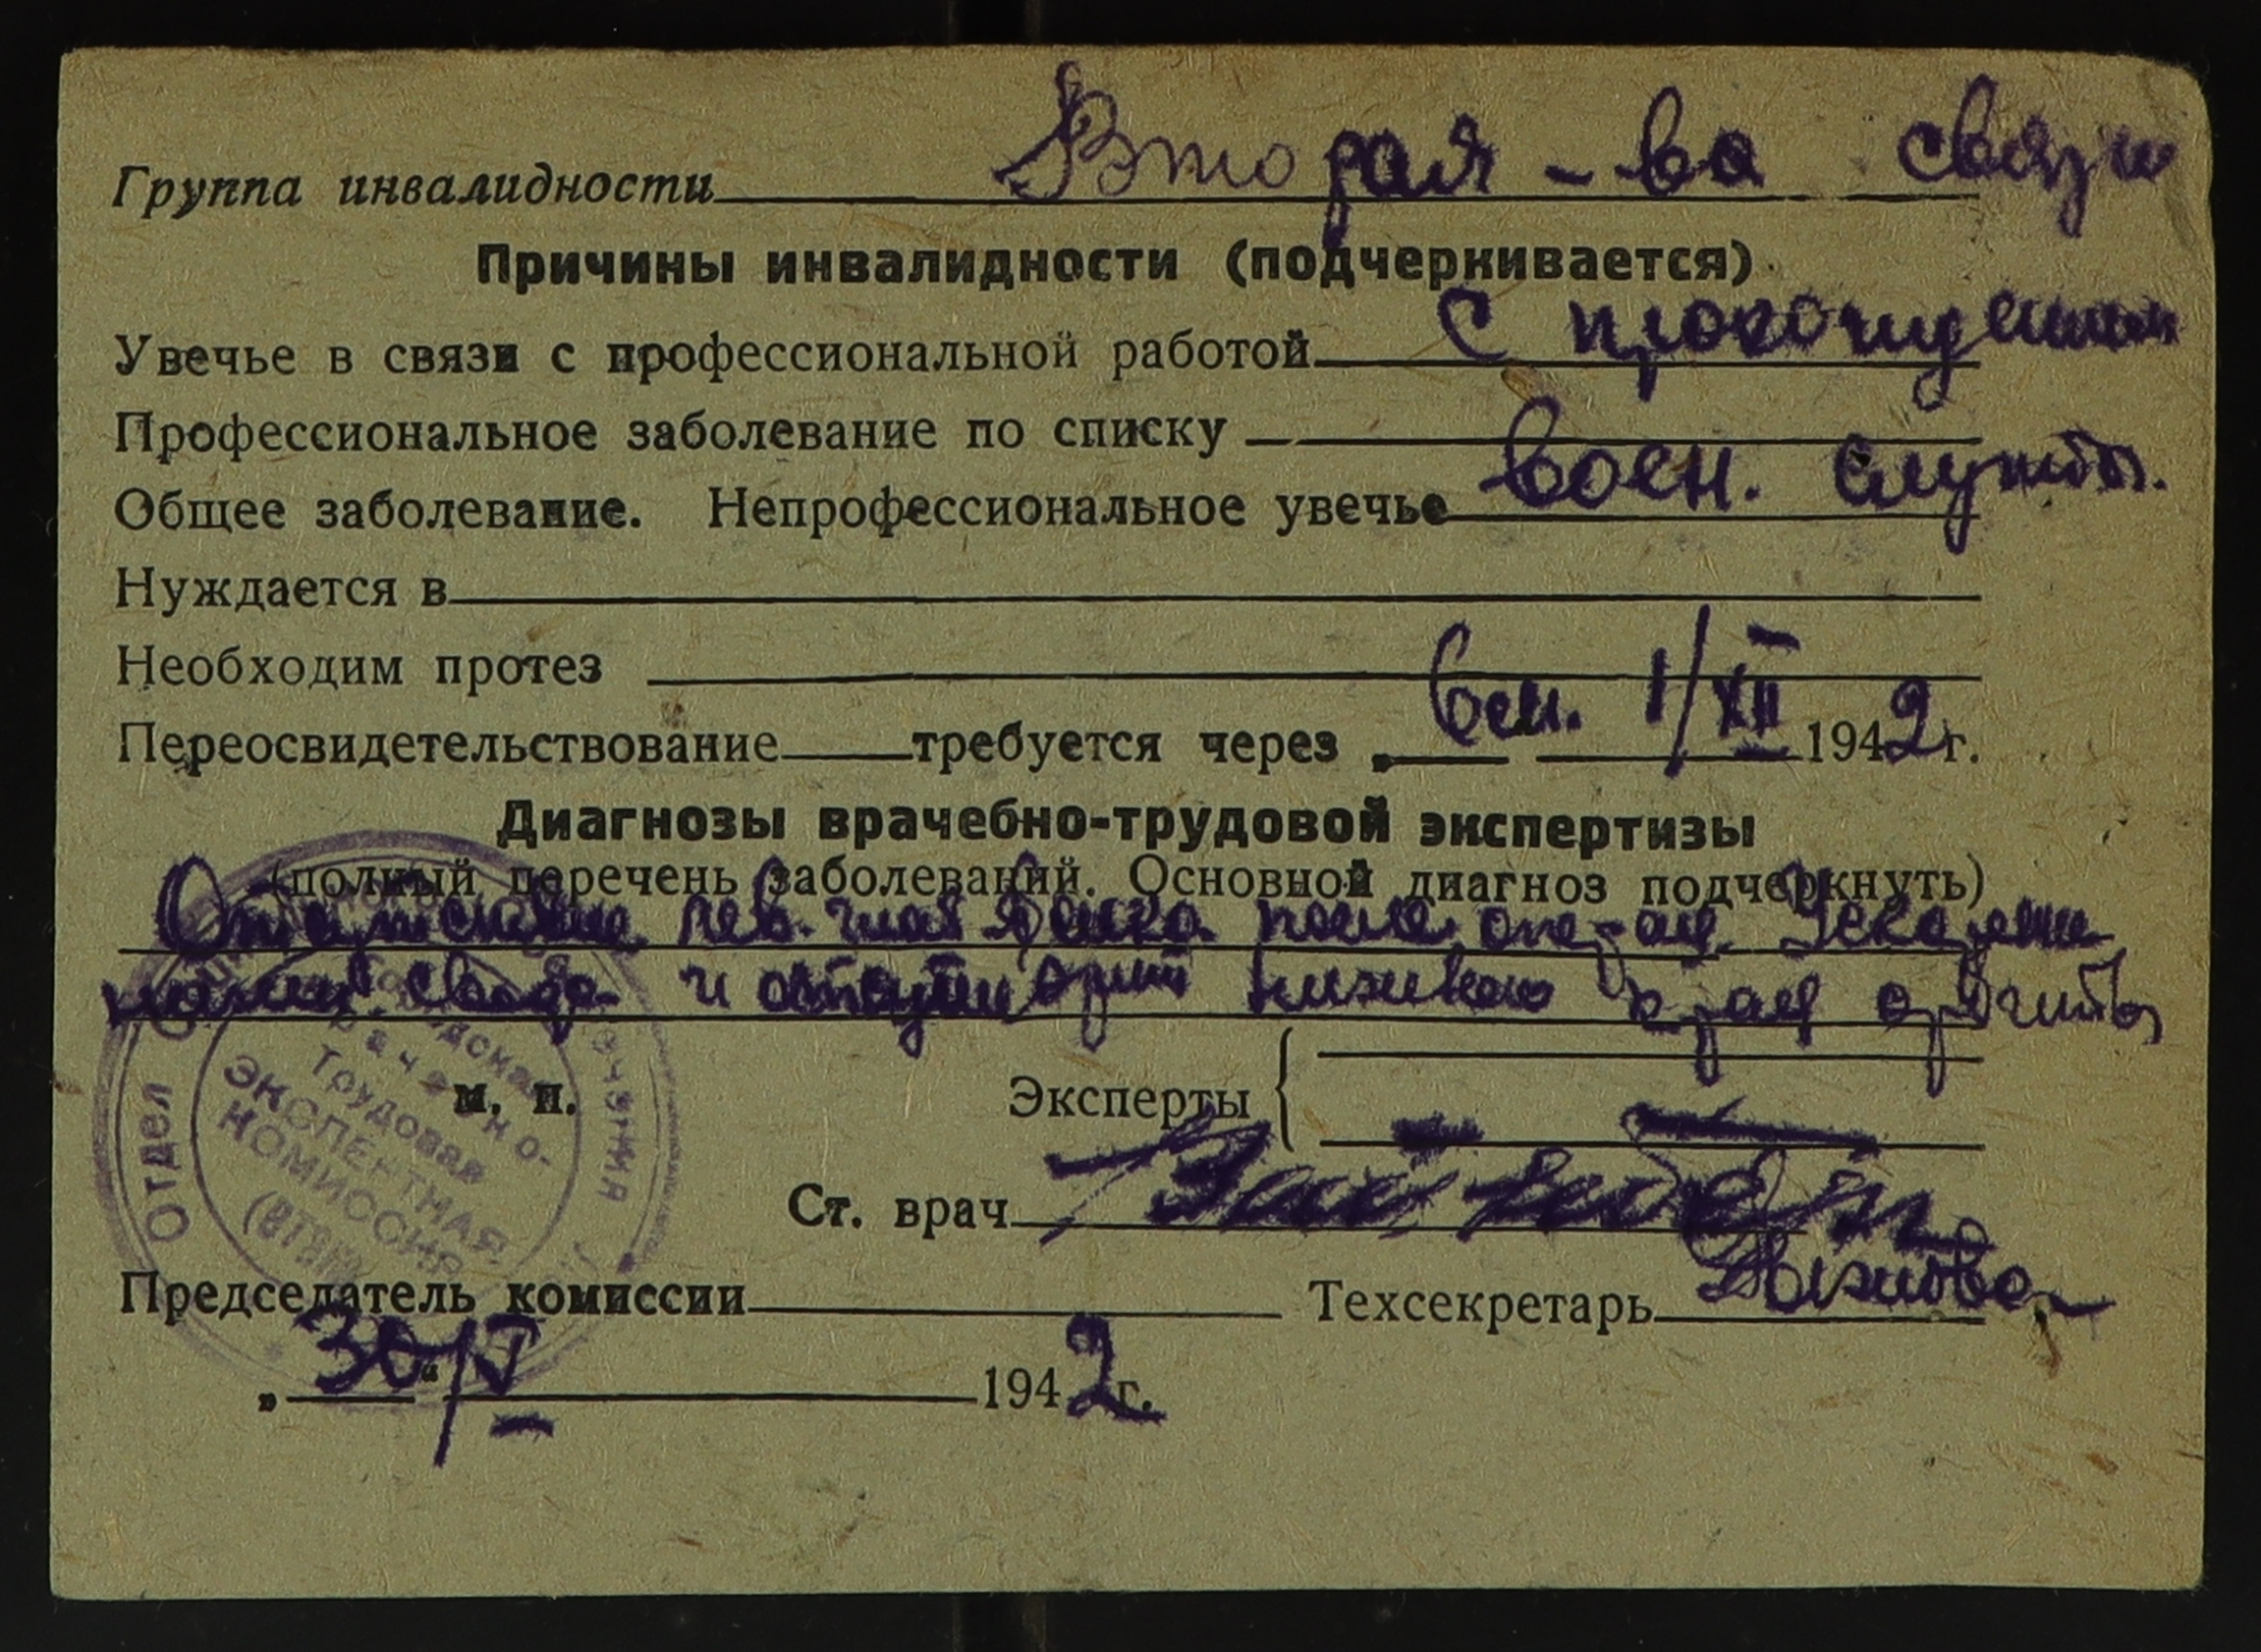 Группа инвалидности Вторая - во связи
Причины инвалидности (подчеркивается)
Увечье в связи с профессиональной работой с прохождением
Профессиональное заболевание по списку
Общее заболевание. Непрофессиональное увечье воен. службы.
Нуждается в
Необходим протез
Переосвидетельствование требуется через „ 6 м. 1/XII 1942 г.
Диагнозы врачебно-трудовой экспертизы
(полный перечень заболеваний. Основной диагноз подчеркнуть)
Отсутствие лев. после
и нижнего края орбиты
Отдел
Врачебно-
Трудовая
ЭКСПЕРТНАЯ
КОМИССИЯ
(ВТЭК)
м. п. Эксперты
Ст. врач
Председатель комиссии Техсекретарь
„30“/V 1942 г.